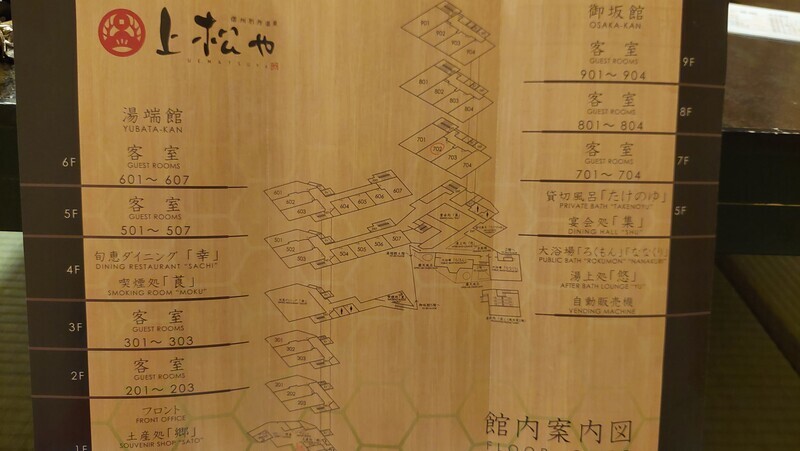 信州別所温泉
上松や
UEMATSUYA
湯端館
YUBATA-KAN
6F
客室
GUEST ROOMS
601〜607
5F
客室
GUEST ROOMS
501〜507
4F
旬恵ダイニング「幸」
DINING RESTAURANT "SACHI"
喫煙処「莨」
SMOKING ROOM "MOKU"
3F
客室
GUEST ROOMS
301〜303
2F
客室
GUEST ROOMS
201〜203
1F
フロント
FRONT OFFICE
土産処「郷」
SOUVENIR SHOP "SATO"
御坂館
OSAKA-KAN
9F
客室
GUEST ROOMS
901〜904
8F
客室
GUEST ROOMS
801〜804
7F
客室
GUEST ROOMS
701〜704
5F
貸切風呂「たけのゆ」
PRIVATE BATH "TAKENOYU"
宴会処「集」
DINING HALL "SHU"
大浴場「ろくもん」「ななくり」
PUBLIC BATH "ROKUMON" "NANAKURI"
湯上処「悠」
AFTER BATH LOUNGE "YU"
自動販売機
VENDING MACHINE
901
902
903
904
801
802
803
804
701
702
703
704
601
602
603
604
605
606
607
501
502
503
504
505
506
507
301
302
303
201
202
203
館内案内図
FLOOR